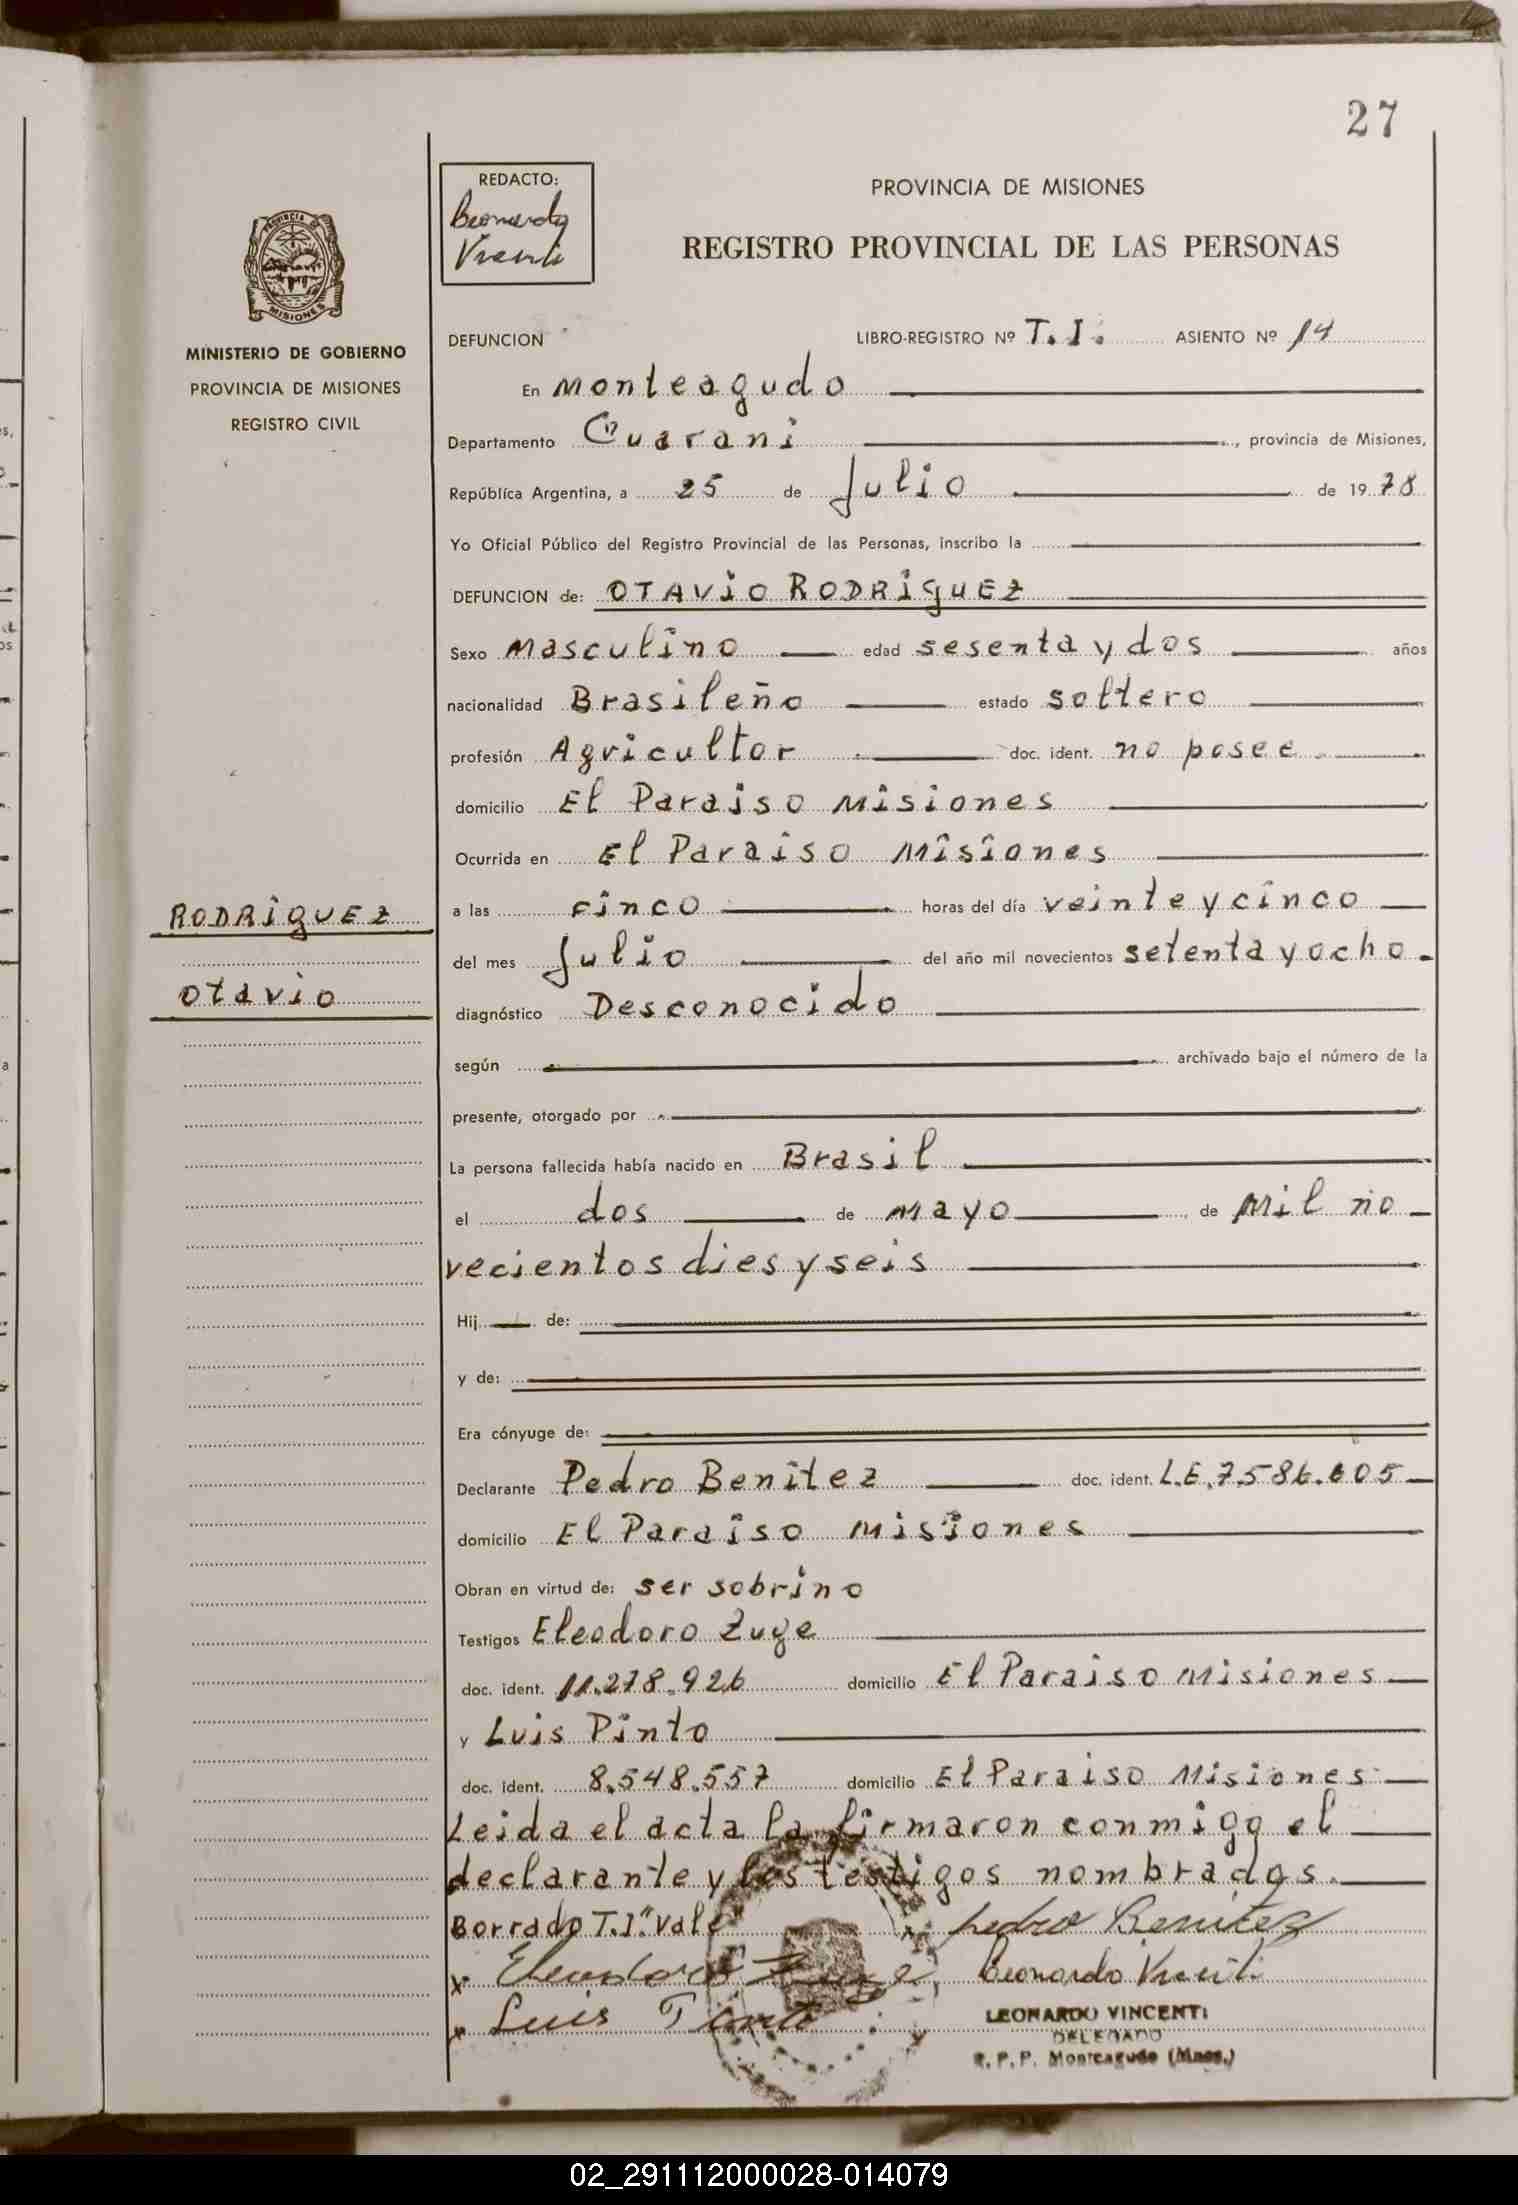 27
REDACTO:
Leonardo
Vicenti
PROVINCIA DE MISIONES
REGISTRO PROVINCIAL DE LAS PERSONAS
PROVINCIA DE
MISIONES
MINISTERIO DE GOBIERNO
PROVINCIA DE MISIONES
REGISTRO CIVIL
DEFUNCION LIBRO-REGISTRO Nº T.I. ASIENTO Nº 14
En Monteagudo
Departamento Guarani, provincia de Misiones,
República Argentina, a 25 de Julio de 1978
Yo Oficial Público del Registro Provincial de las Personas, inscribo la
DEFUNCION de: OTAVIO RODRIGUEZ
Sexo Masculino edad sesenta y dos años
nacionalidad Brasileño estado soltero
profesión Agricultor doc. ident. no posee
domicilio El Paraiso Misiones
Ocurrida en El Paraiso Misiones
RODRIGUEZ
a las cinco horas del día veinte y cinco
del mes Julio del año mil novecientos setenta y ocho.
Otavio
diagnóstico Desconocido
según archivado bajo el número de la
presente, otorgado por
La persona fallecida había nacido en Brasil
el dos de mayo de Mil no
vecientos dies y seis
Hij de:
y de:
Era cónyuge de:
Declarante Pedro Benitez doc. ident. L.E.
domicilio El Paraiso Misiones
Obran en virtud de: ser sobrino
Testigos Eleodoro Zuge
doc. ident. 11.278.926 domicilio El Paraiso Misiones
y Luis Pinto
doc. ident. 8.548.557 domicilio El Paraiso Misiones
Leida el acta la firmaron conmigo el
declarante y los testigos nombrados.
Borrado T.I "Vale" Pedro Benitez
x Eleodoro Zuge Leonardo Vicenti
x Luis Pinto
LEONARDO VINCENTI
DELEGADO
R.P.P. Monteagudo (Mnes.)
02_291112000028-014079